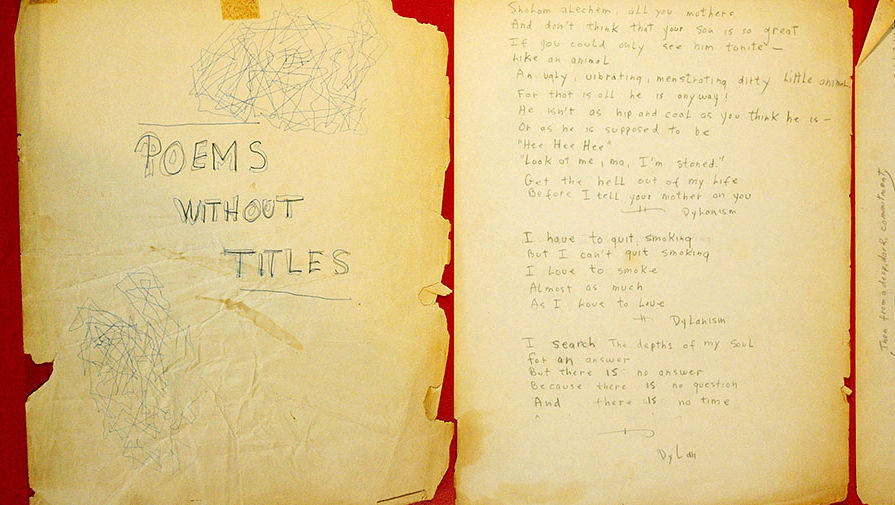 POEMS
WITHOUT
TITLES
Sholom aLechem, all you mothers
And don't think that your son is so great
If you could only see him tonite —
Like an animal
An ugly, vibrating, menstrating dirty little animal
For that is all he is anyway!
He isn't as hip and cool as you think he is —
Or as he is supposed to be
"Hee Hee Hee"
"Look at me, ma, I'm stoned."
Get the hell out of my life
Before I tell your mother on you
Dylanism
I have to quit, smoking
But I can't quit smoking
I Love to smoke
Almost as much
As I Love to Love
Dylanism
I search The depths of my soul
for an answer
But there IS no answer
Because there IS no question
And there IS no time
Dylan
Then from a deep, dark, commitment